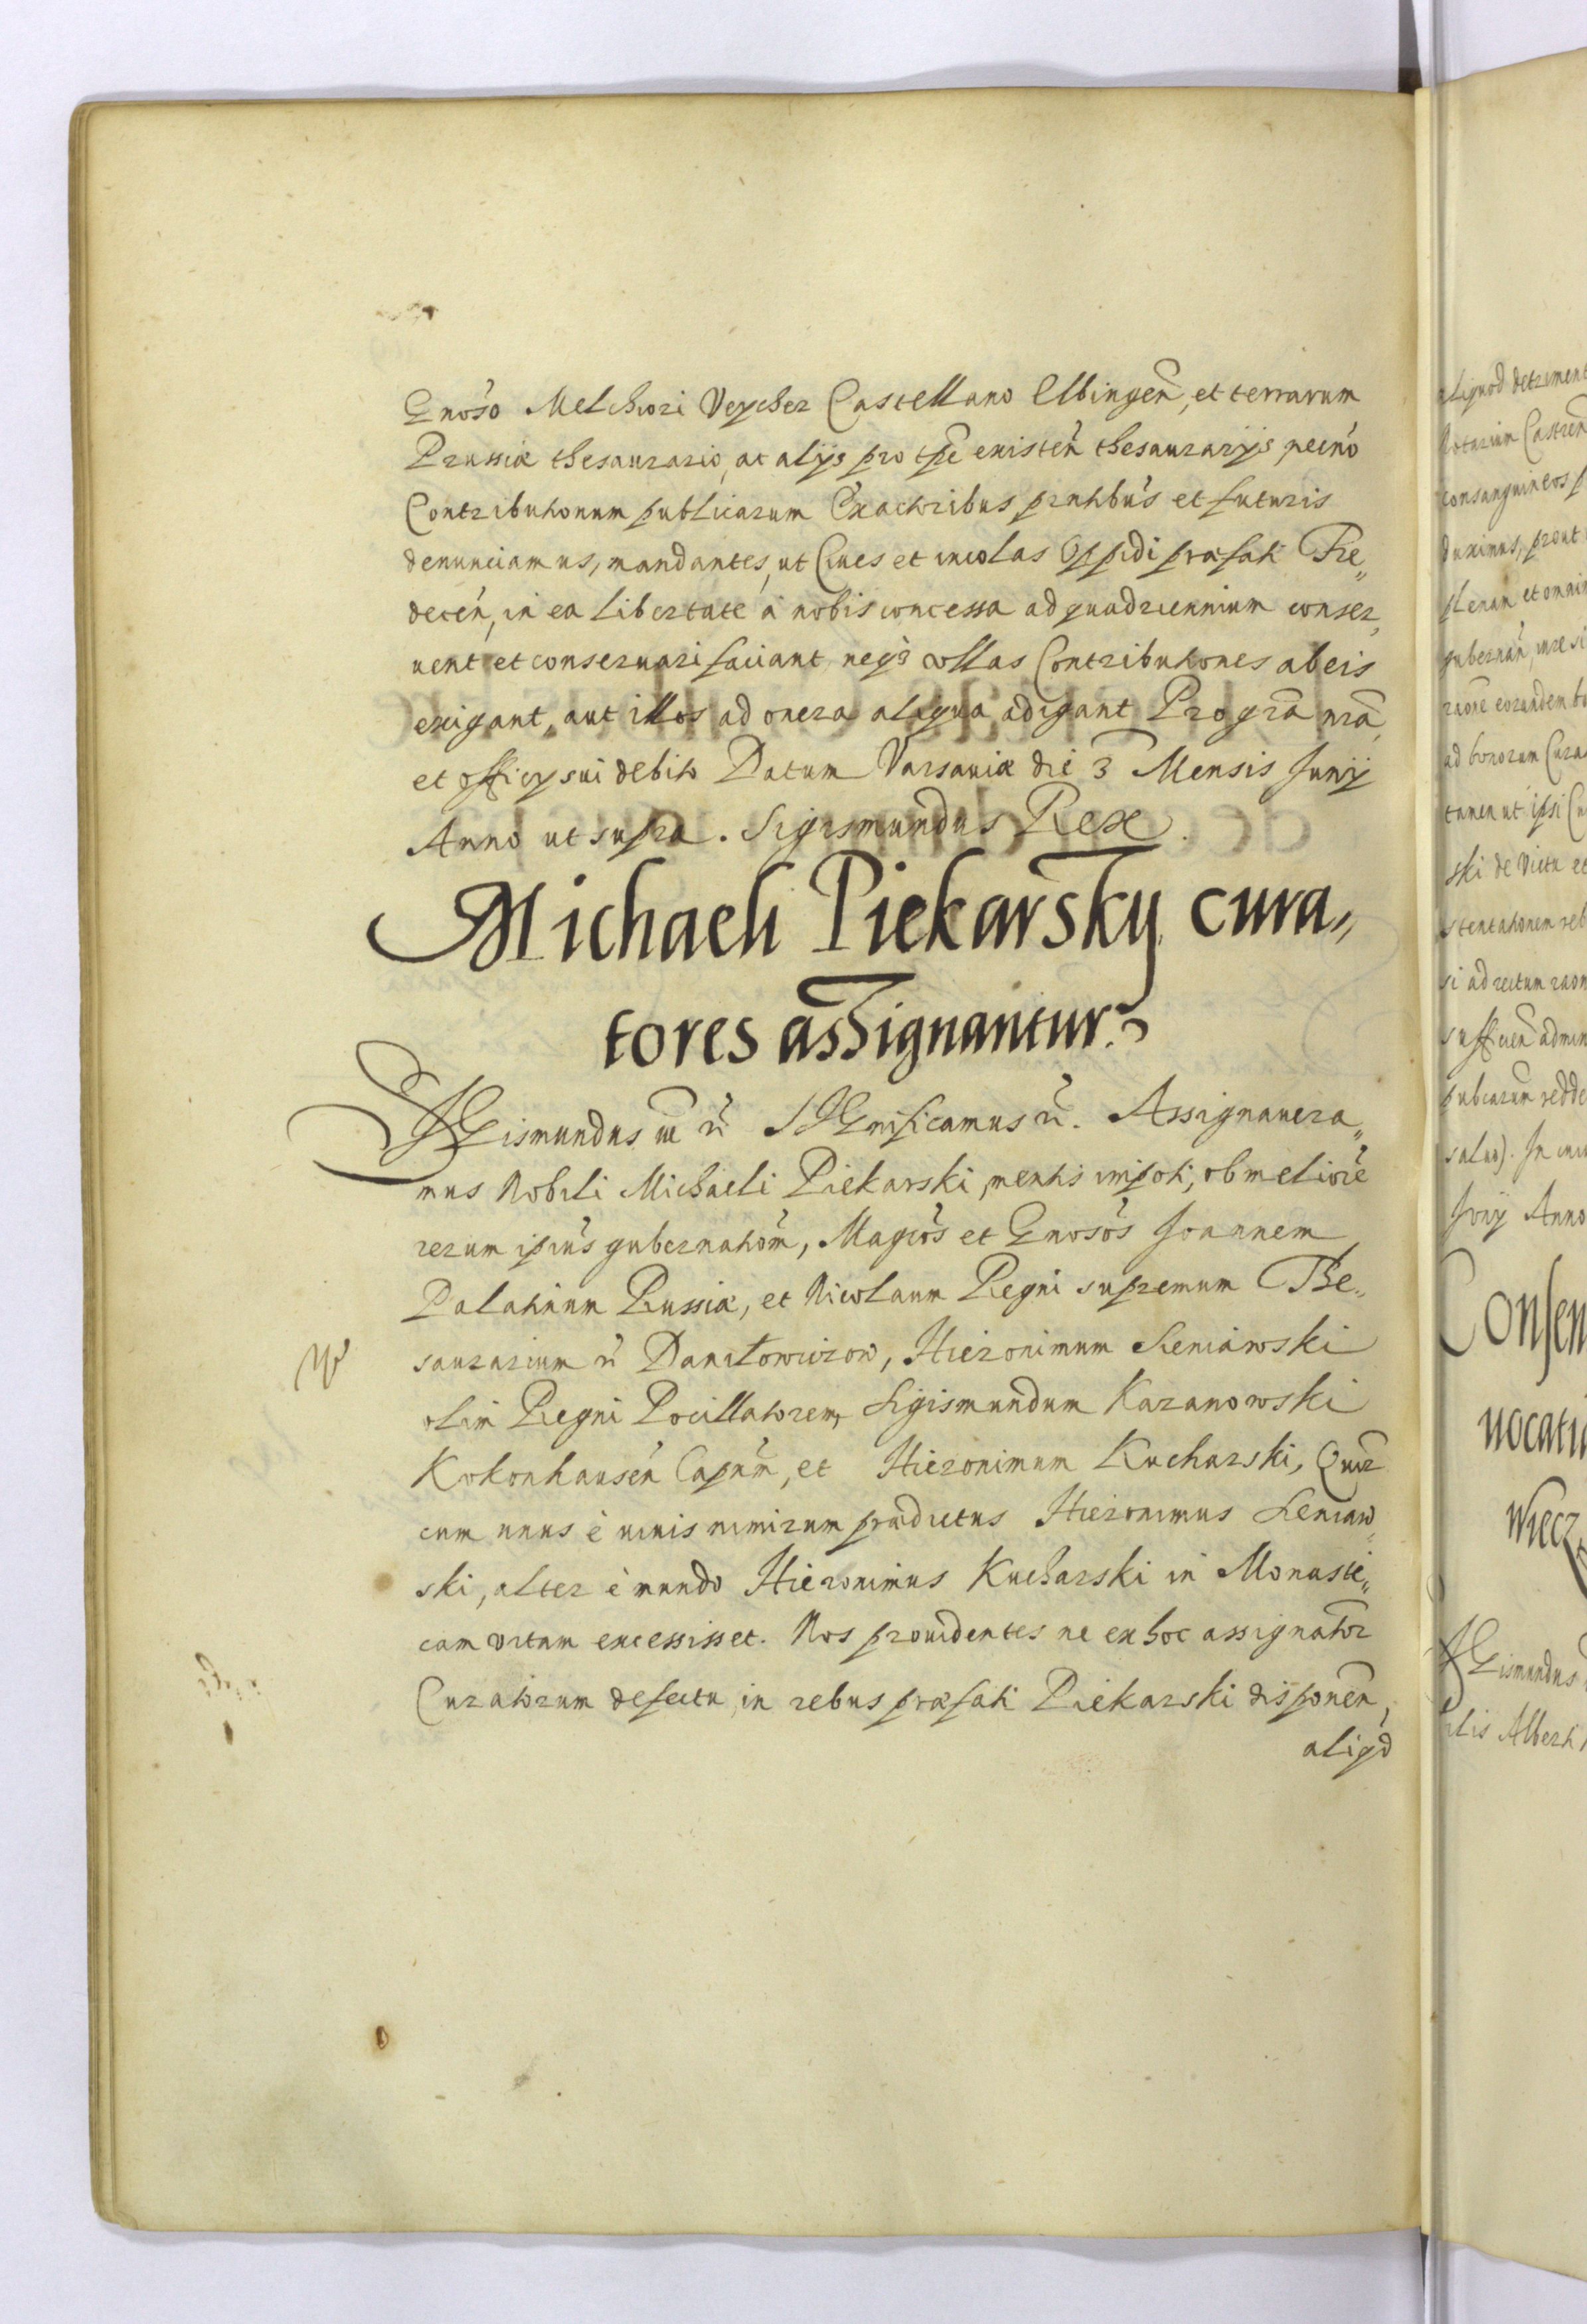 Gnoso Melchiori Veycher Castellano Elbingen, et terrarum
Prussiæ thesaurario, ac alijs pro tpe existen thesaurarijs, necno
Contributionum publicarum Exactoribus pntibus et futuris
denunciamus, mandantes, ut Ciues et incolas Oppidi præfati Fre„
decen, in ea libertate à nobis concessa ad quadriennium conser„
uent et conseruari faciant, neqз ollas Contributiones ab eis
exigant, aut illos ad onera aliqua adigant Pro gra nra,
et officij sui debito Datum Varsauiæ die 3 Mensis Junij
Anno ut supra. Sigismundus Rex.
Michaeli Piekarsky cura„
tores assignantur.
SIGismundus III etc SIGnificamus etc. Assignauera„
mus Nobili Michaeli Piekarski, mentis impoti, ob meliore
rerum ipius gubernatiom, Magcos et Gnosos Joannem
Palatinum Russiæ, et Nicolaum Regni supremum The„
saurarium etc Daniłowiczow, Hieronimum Sieniawski
olim Regni Pocillatorem, Sigismundum Kazanowski
Kokonhausen Capnm, et Hieronimum Kucharski, Quor
cum unus è uiuis nimirum prædictus Hieronimus Sieniaw„
ski, alter è mundo Hieronimus Kucharski in Monasti„
cam vitam excessisset. Nos prouidentes ne ex hoc assignator
Curatorum defectu, in rebus præfati Piekarski disponen,
aliqd
aliquod detriment
Notarium Castren
consanguineos p
duximus, prout
plenam et omnim
gubernan, iure si
raone eorundem bo
ad bonorum Cura
tamen ut ipsi Cu
ski de victu et
stentationem reb
si ad rectum raon
sufficien admin
pubcarum redde
saluo). In cuiu
Junij Anno
Consen
uocatu
Wiecz
SIGismundus
ilis Alberti